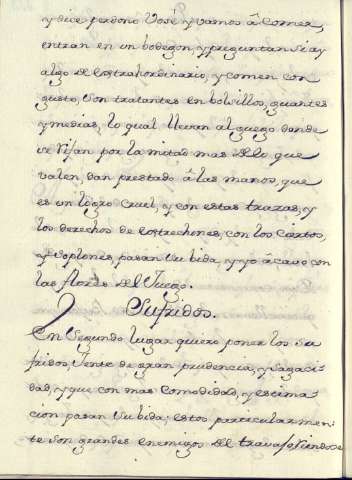 y dice perdone Vosè y vamos â Comer,
entran en un bodegon, y preguntan si ay
algo de extrahordinario, y comen con
gusto, son tratantes en bolsillos, guantes
y medias, lo qual lleuan al juego donde
se Rifan por la mitad mas de lo que
valen, dan prestado â las manos, que
es un logro Cruel, y con estas trazas, y
los derechos de estrechones, con los Ciertos,
y soplones, pasan su bida, y yo acavo con
las flores del Juego.
Sufridos.
En Segundo lugar quiero poner los Su
fridos, Jente de gran prudencia, y Sagaci-
dad, y que con mas Comodidad, y estima-
cion pasan su bida; estos particularmen-
te son grandes enemigos del travajo, siendo